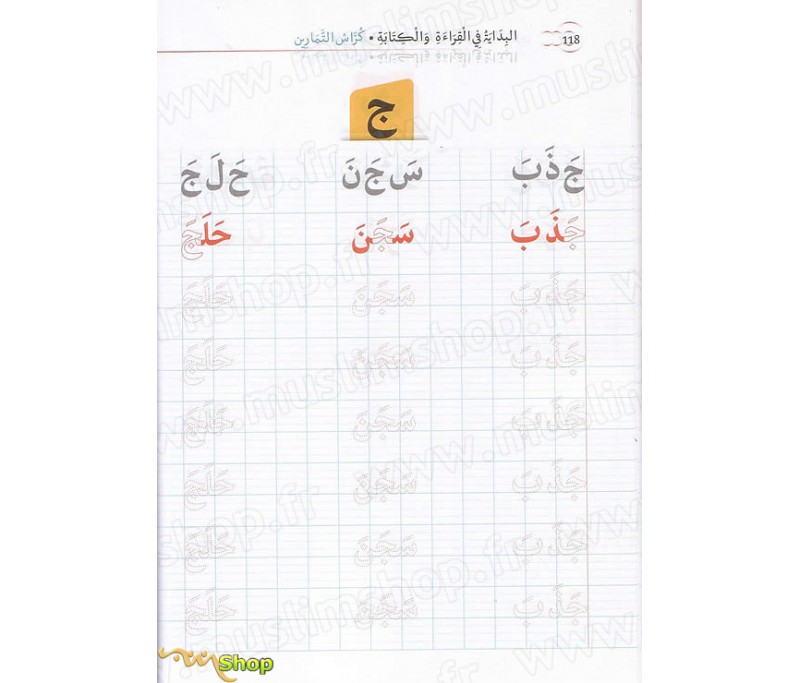 118 البِدَايَةُ فِي الْقِرَاءَةِ وَالْكِتَابَةِ • كُرَّاسُ التَّمَارِين
ج
جَ ذَ بَ سَ جَ نَ حَ لَ جَ
جَذَبَ سَجَنَ حَلَجَ
جَذَبَ سَجَنَ حَلَجَ
جَذَبَ سَجَنَ حَلَجَ
جَذَبَ سَجَنَ حَلَجَ
جَذَبَ سَجَنَ حَلَجَ
جَذَبَ سَجَنَ حَلَجَ
جَذَبَ سَجَنَ حَلَجَ
www.muslimshop.fr
Shop